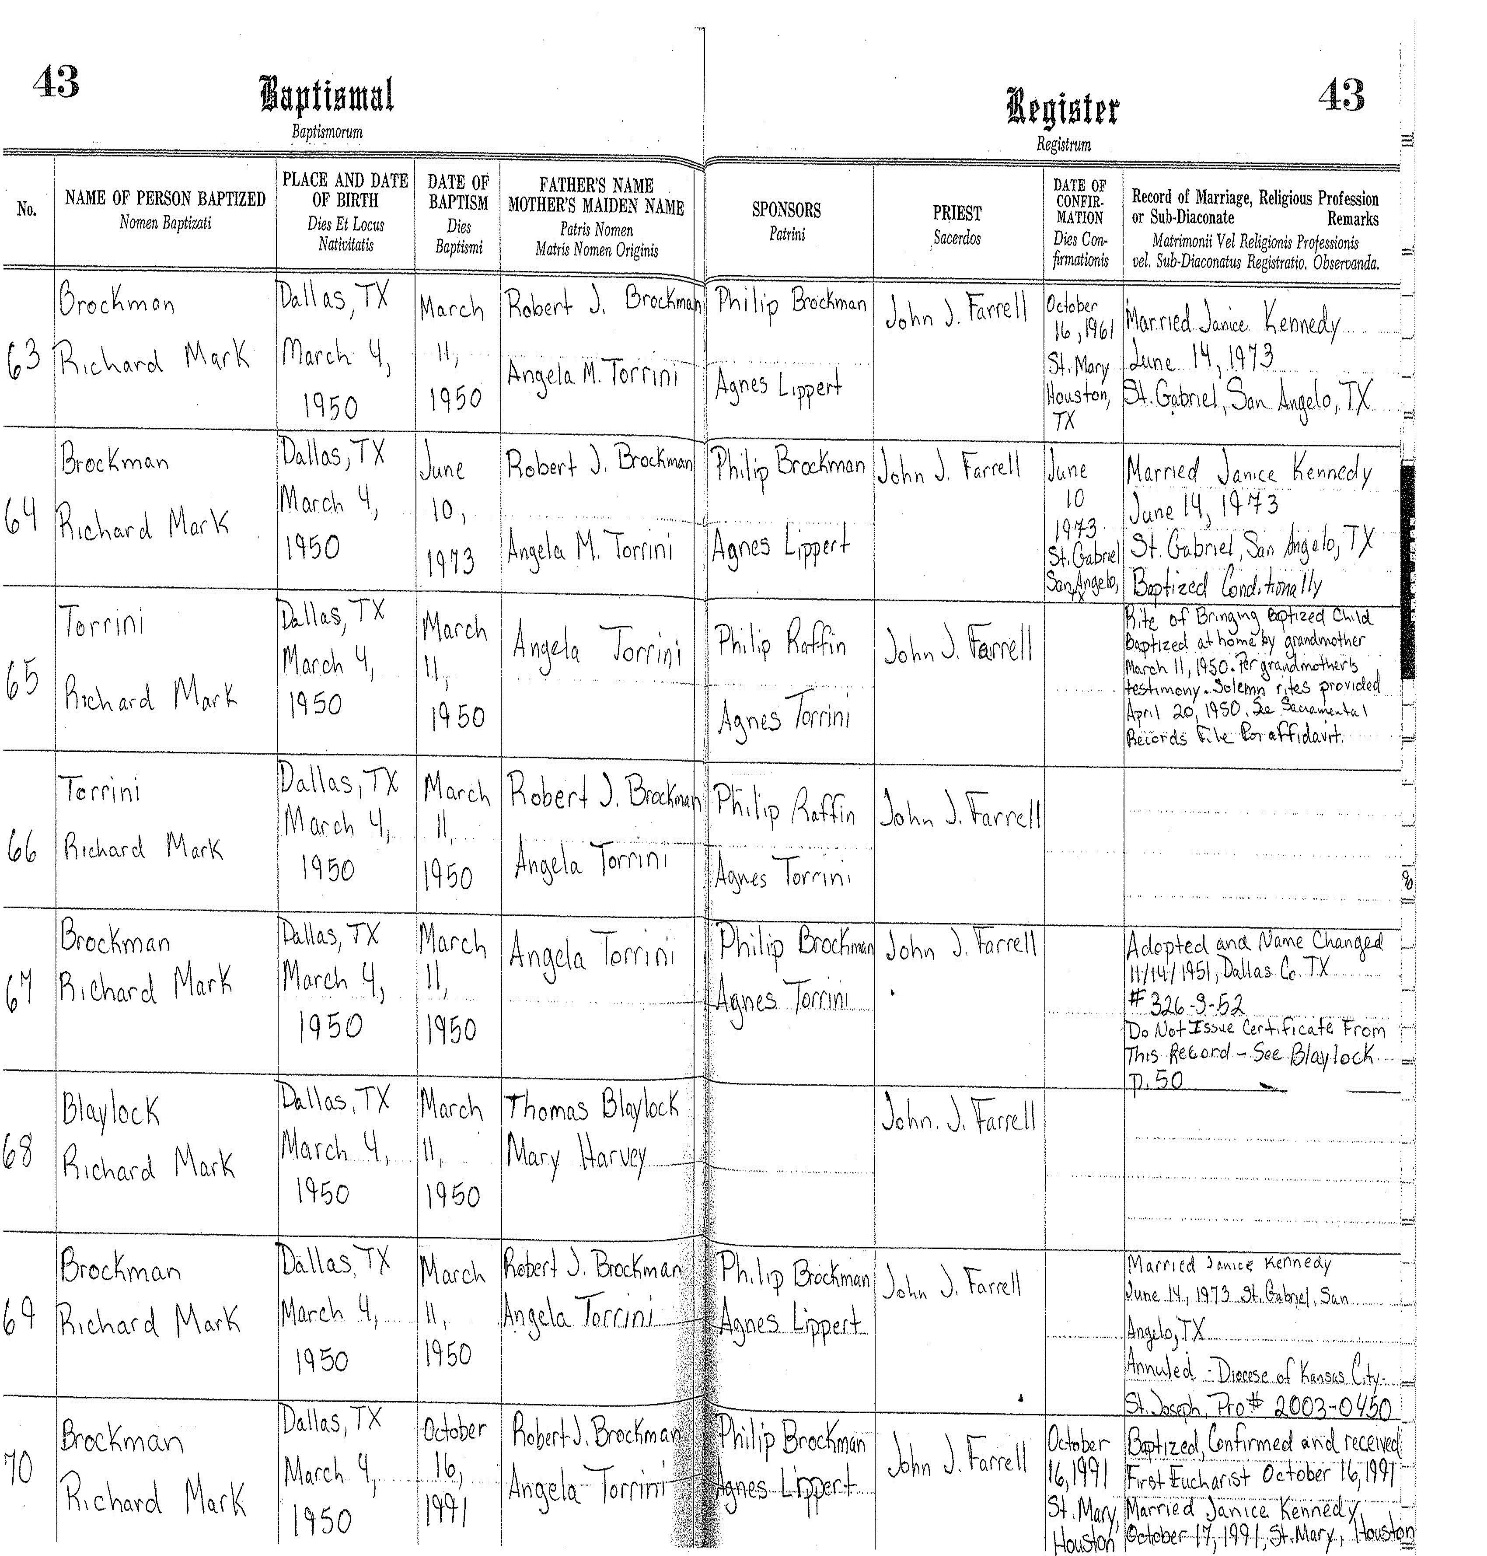 43
Baptismal
Baptismorum
Register
Registrum
43
No.
NAME OF PERSON BAPTIZED
Nomen Baptizati
PLACE AND DATE
OF BIRTH
Dies Et Locus
Nativitatis
DATE OF
BAPTISM
Dies
Baptismi
FATHER'S NAME
MOTHER'S MAIDEN NAME
Patris Nomen
Matris Nomen Originis
SPONSORS
Patrini
PRIEST
Sacerdos
DATE OF
CONFIR-
MATION
Dies Con-
firmationis
Record of Marriage, Religious Profession
or Sub-Diaconate Remarks
Matrimonii Vel Religionis Professionis
vel. Sub-Diaconatus Registratio. Observanda.
63
Brockman
Richard Mark
Dallas, TX
March 4,
1950
March
11,
1950
Robert J. Brockman
Angela M. Torrini
Philip Brockman
Agnes Lippert
John J. Farrell
October
16, 1961
St. Mary
Houston,
TX
Married Janice Kennedy
June 14, 1973
St. Gabriel, San Angelo, TX
64
Brockman
Richard Mark
Dallas, TX
March 4,
1950
June
10,
1973
Robert J. Brockman
Angela M. Torrini
Philip Brockman
Agnes Lippert
John J. Farrell
June
10
1973
St. Gabriel
San Angelo,
TX
Married Janice Kennedy
June 14, 1973
St. Gabriel, San Angelo, TX
Baptized Conditionally
65
Torrini
Richard Mark
Dallas, TX
March 4,
1950
March
11,
1950
Angela Torrini
Philip Raffin
Agnes Torrini
John J. Farrell
Rite of Bringing Baptized Child
Baptized at home by grandmother
March 11, 1950. Per grandmother's
testimony. Solemn rites provided
April 20, 1950. See Sacramental
Records File for affidavit.
66
Torrini
Richard Mark
Dallas, TX
March 4,
1950
March
11,
1950
Robert J. Brockman
Angela Torrini
Philip Raffin
Agnes Torrini
John J. Farrell
67
Brockman
Richard Mark
Dallas, TX
March 4,
1950
March
11,
1950
Angela Torrini
Philip Brockman
Agnes Torrini
John J. Farrell
Adopted and Name Changed
11/14/1951, Dallas Co. TX
# 326-9-52
Do Not Issue Certificate From
This Record - See Blaylock
p. 50
68
Blaylock
Richard Mark
Dallas, TX
March 4,
1950
March
11,
1950
Thomas Blaylock
Mary Harvey
John. J. Farrell
69
Brockman
Richard Mark
Dallas, TX
March 4,
1950
March
11,
1950
Robert J. Brockman
Angela Torrini
Philip Brockman
Agnes Lippert
John J. Farrell
Married Janice Kennedy
June 14, 1973 St. Gabriel, San
Angelo, TX
Annuled - Diocese of Kansas City-
St. Joseph, Pro# 2003-0450
70
Brockman
Richard Mark
Dallas, TX
March 4,
1950
October
16,
1991
Robert J. Brockman
Angela Torrini
Philip Brockman
Agnes Lippert
John J. Farrell
October
16, 1991
St. Mary,
Houston
Baptized, Confirmed and received
First Eucharist October 16, 1991
Married Janice Kennedy
October 17, 1991, St. Mary, Houston